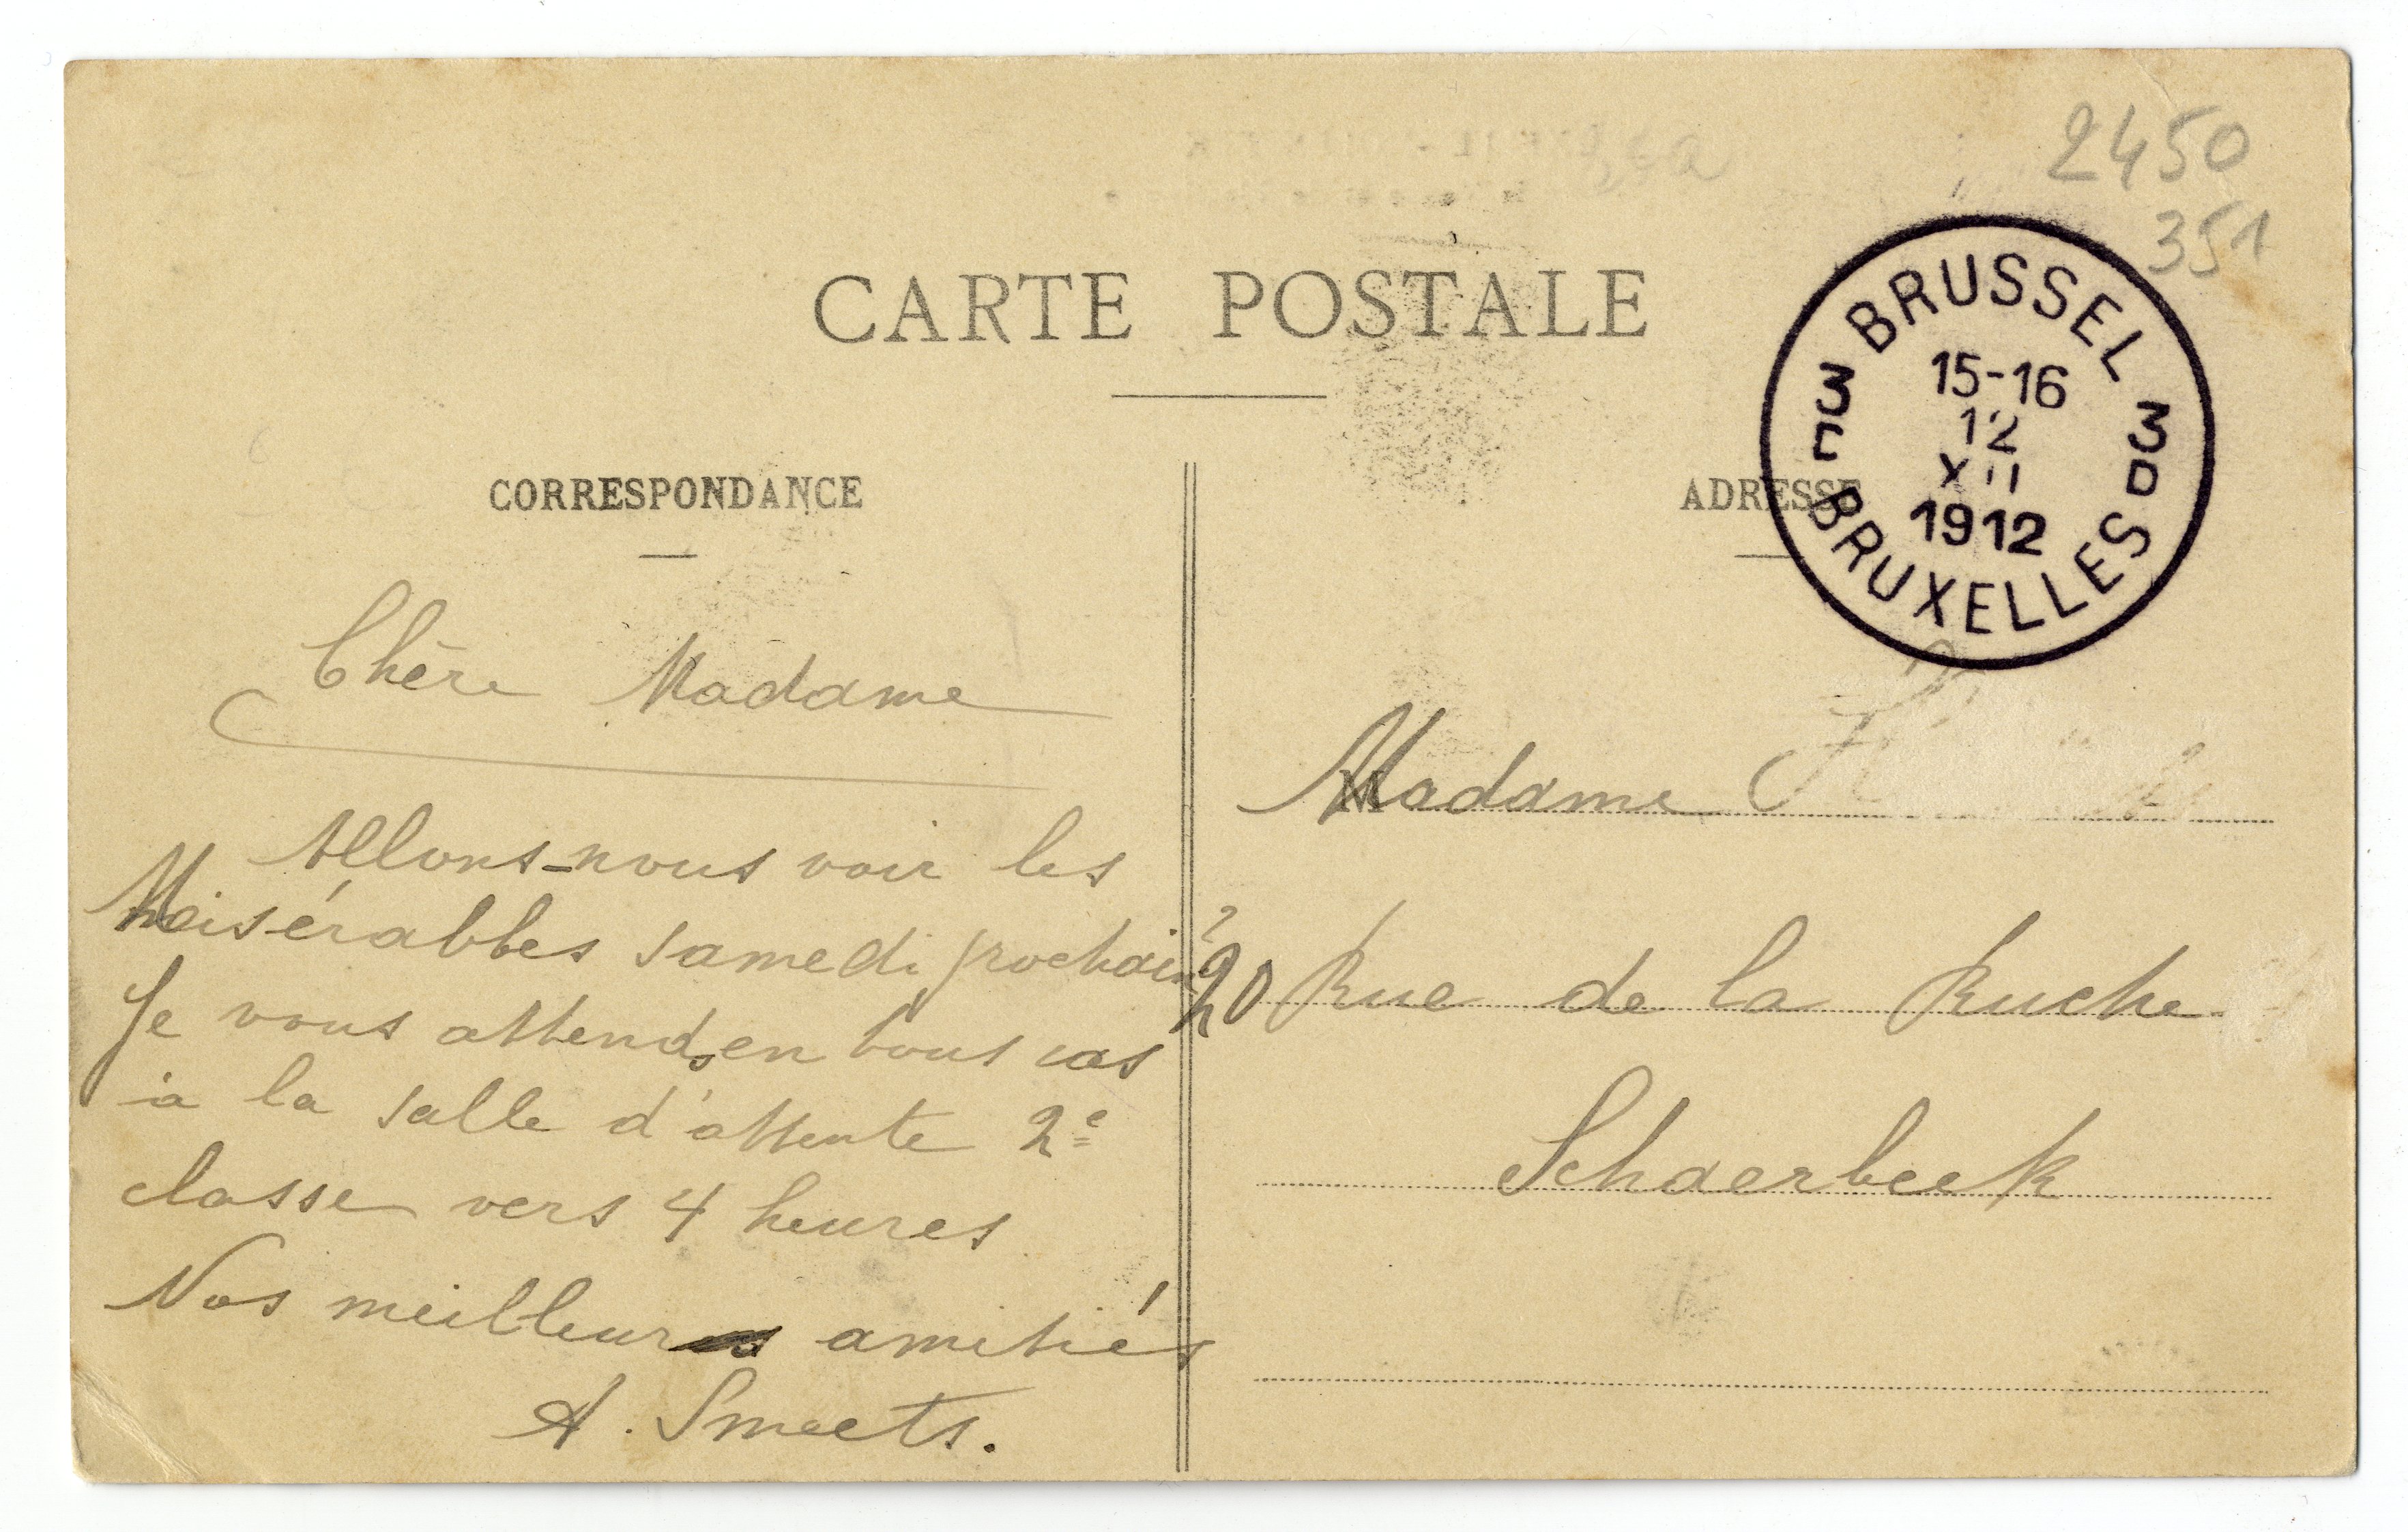 2450
351
CARTE POSTALE
BRUSSEL
15-16
12
XII
1912
3 3
D
BRUXELLES
CORRESPONDANCE
ADRESSE
Chère Madame
Allons-nous voir les
Misérables samedi prochain?
Je vous attends en tous cas
à la salle d'attente 2e
classe vers 4 heures
Nos meilleurs amitiés
A. Smeets.
M
Madame
20 Rue de la Ruche
Schaerbeek